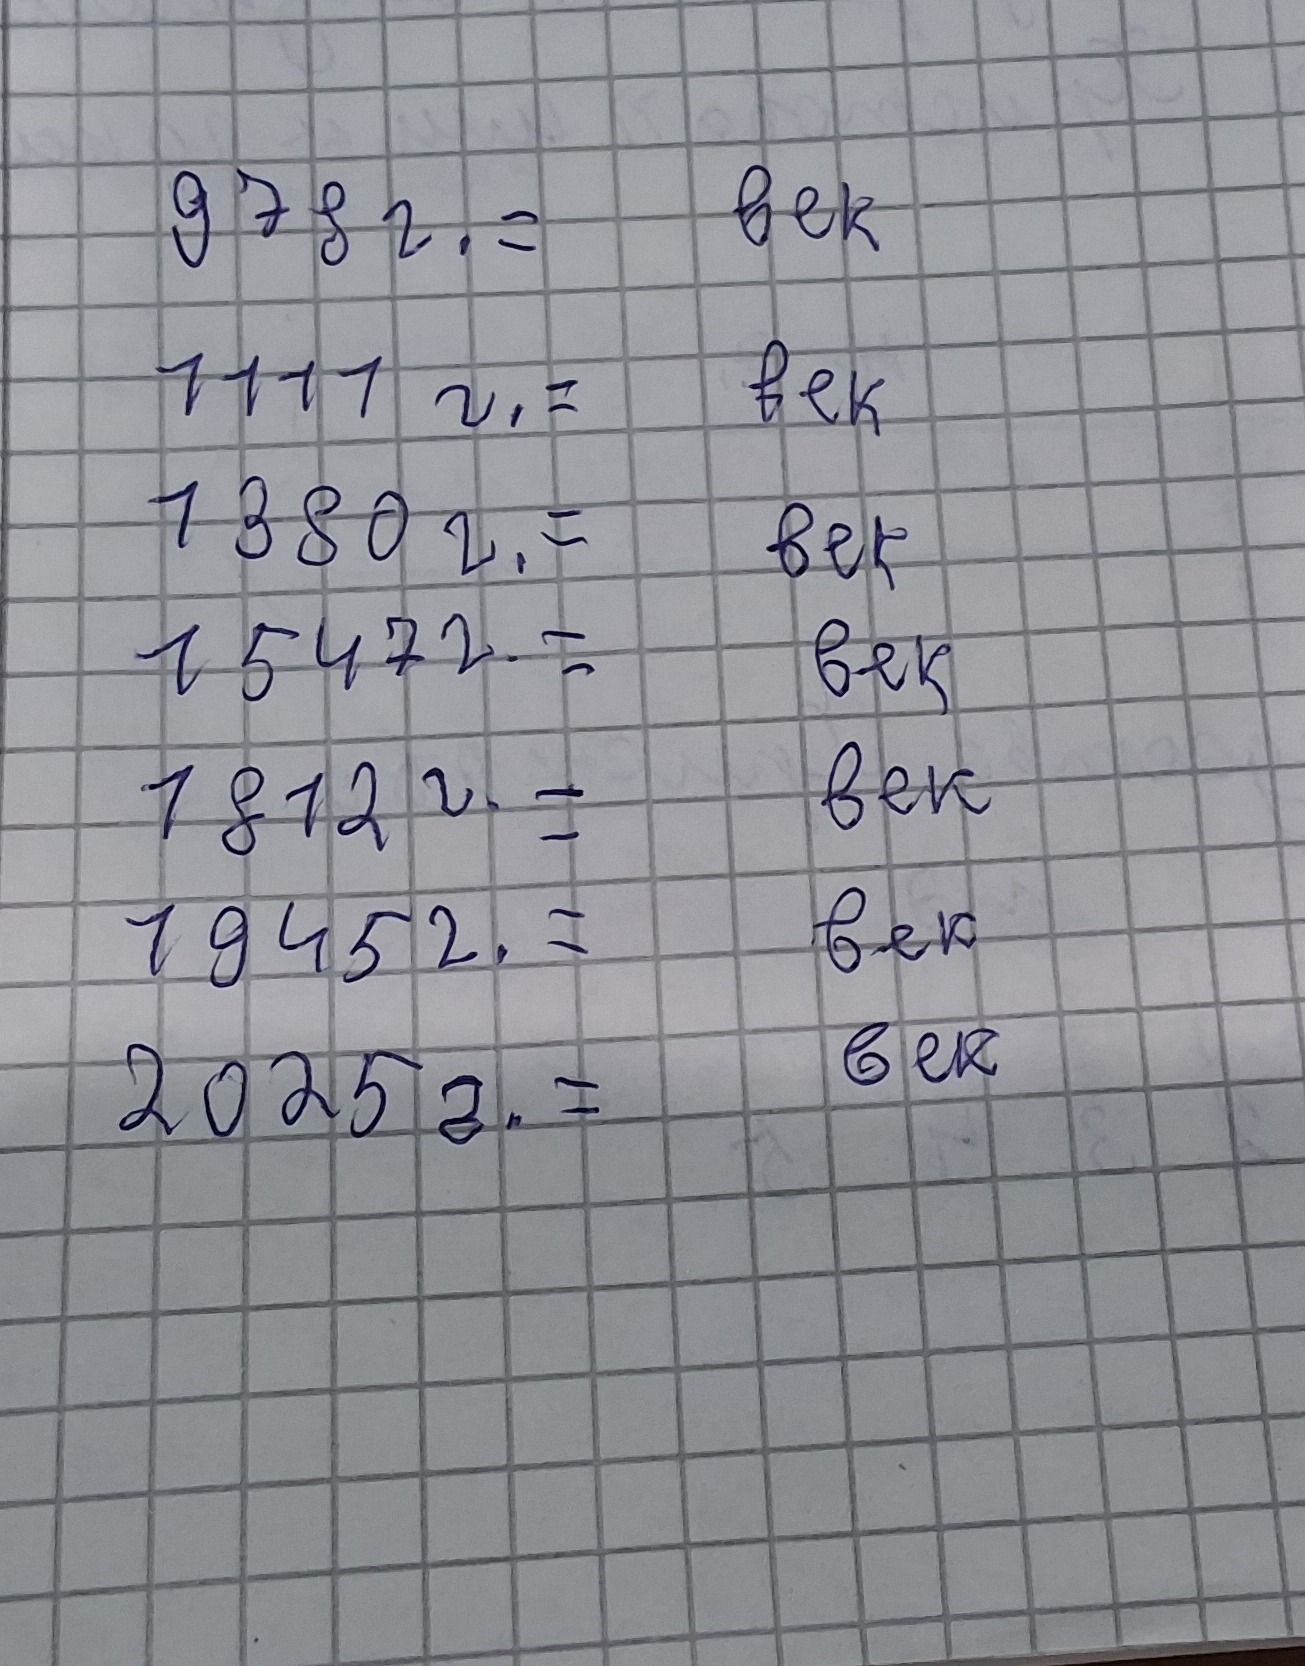 978г. = век
1111 г. = век
1380 г. = век
1547г. = век
1812г. = век
1945г. = век
2025г. = век